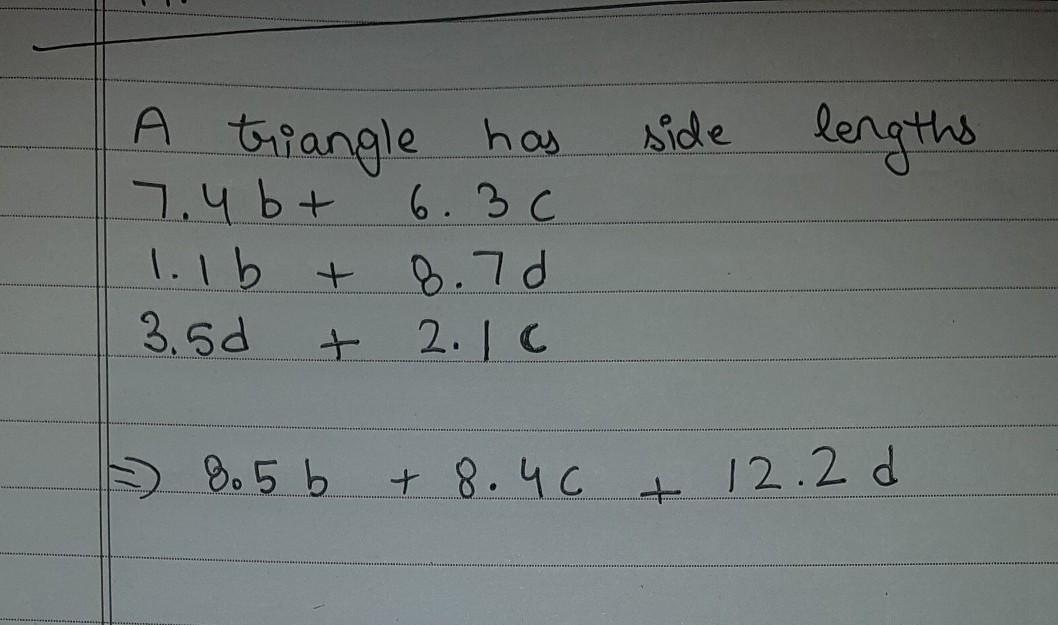 A triangle has side lengths
7.4b + 6.3c
1.1b + 8.7d
3.5d + 2.1c
⇒ 8.5b + 8.4c + 12.2d